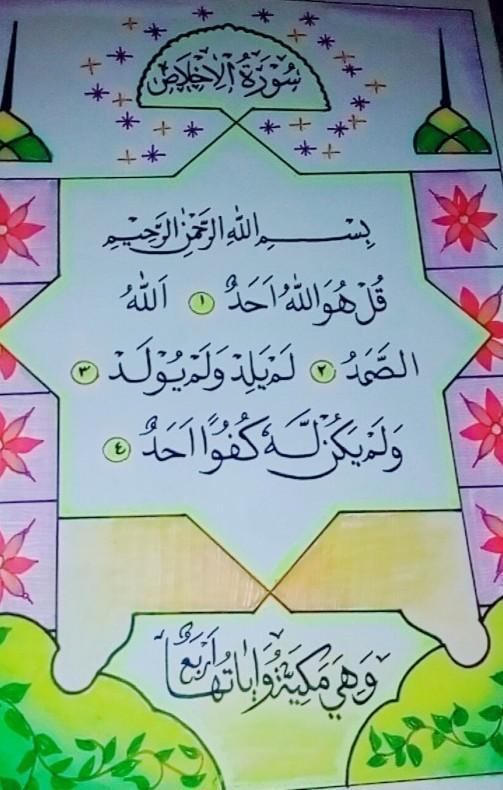 سُوْرَةُ الْإِخْلَاصِ
بِسْـــــــمِ اللّٰهِ الرَّحْمٰنِ الرَّحِيْمِ
قُلْ هُوَ اللّٰهُ اَحَدٌ ١ اَللّٰهُ
الصَّمَدُ ٢ لَمْ يَلِدْ وَلَمْ يُوْلَدْ ٣
وَلَمْ يَكُنْ لَّهٗ كُفُوًا اَحَدٌ ٤
وَهِيَ مَكِيَّةٌ وَاٰيَاتُهَا اَرْبَعٌ